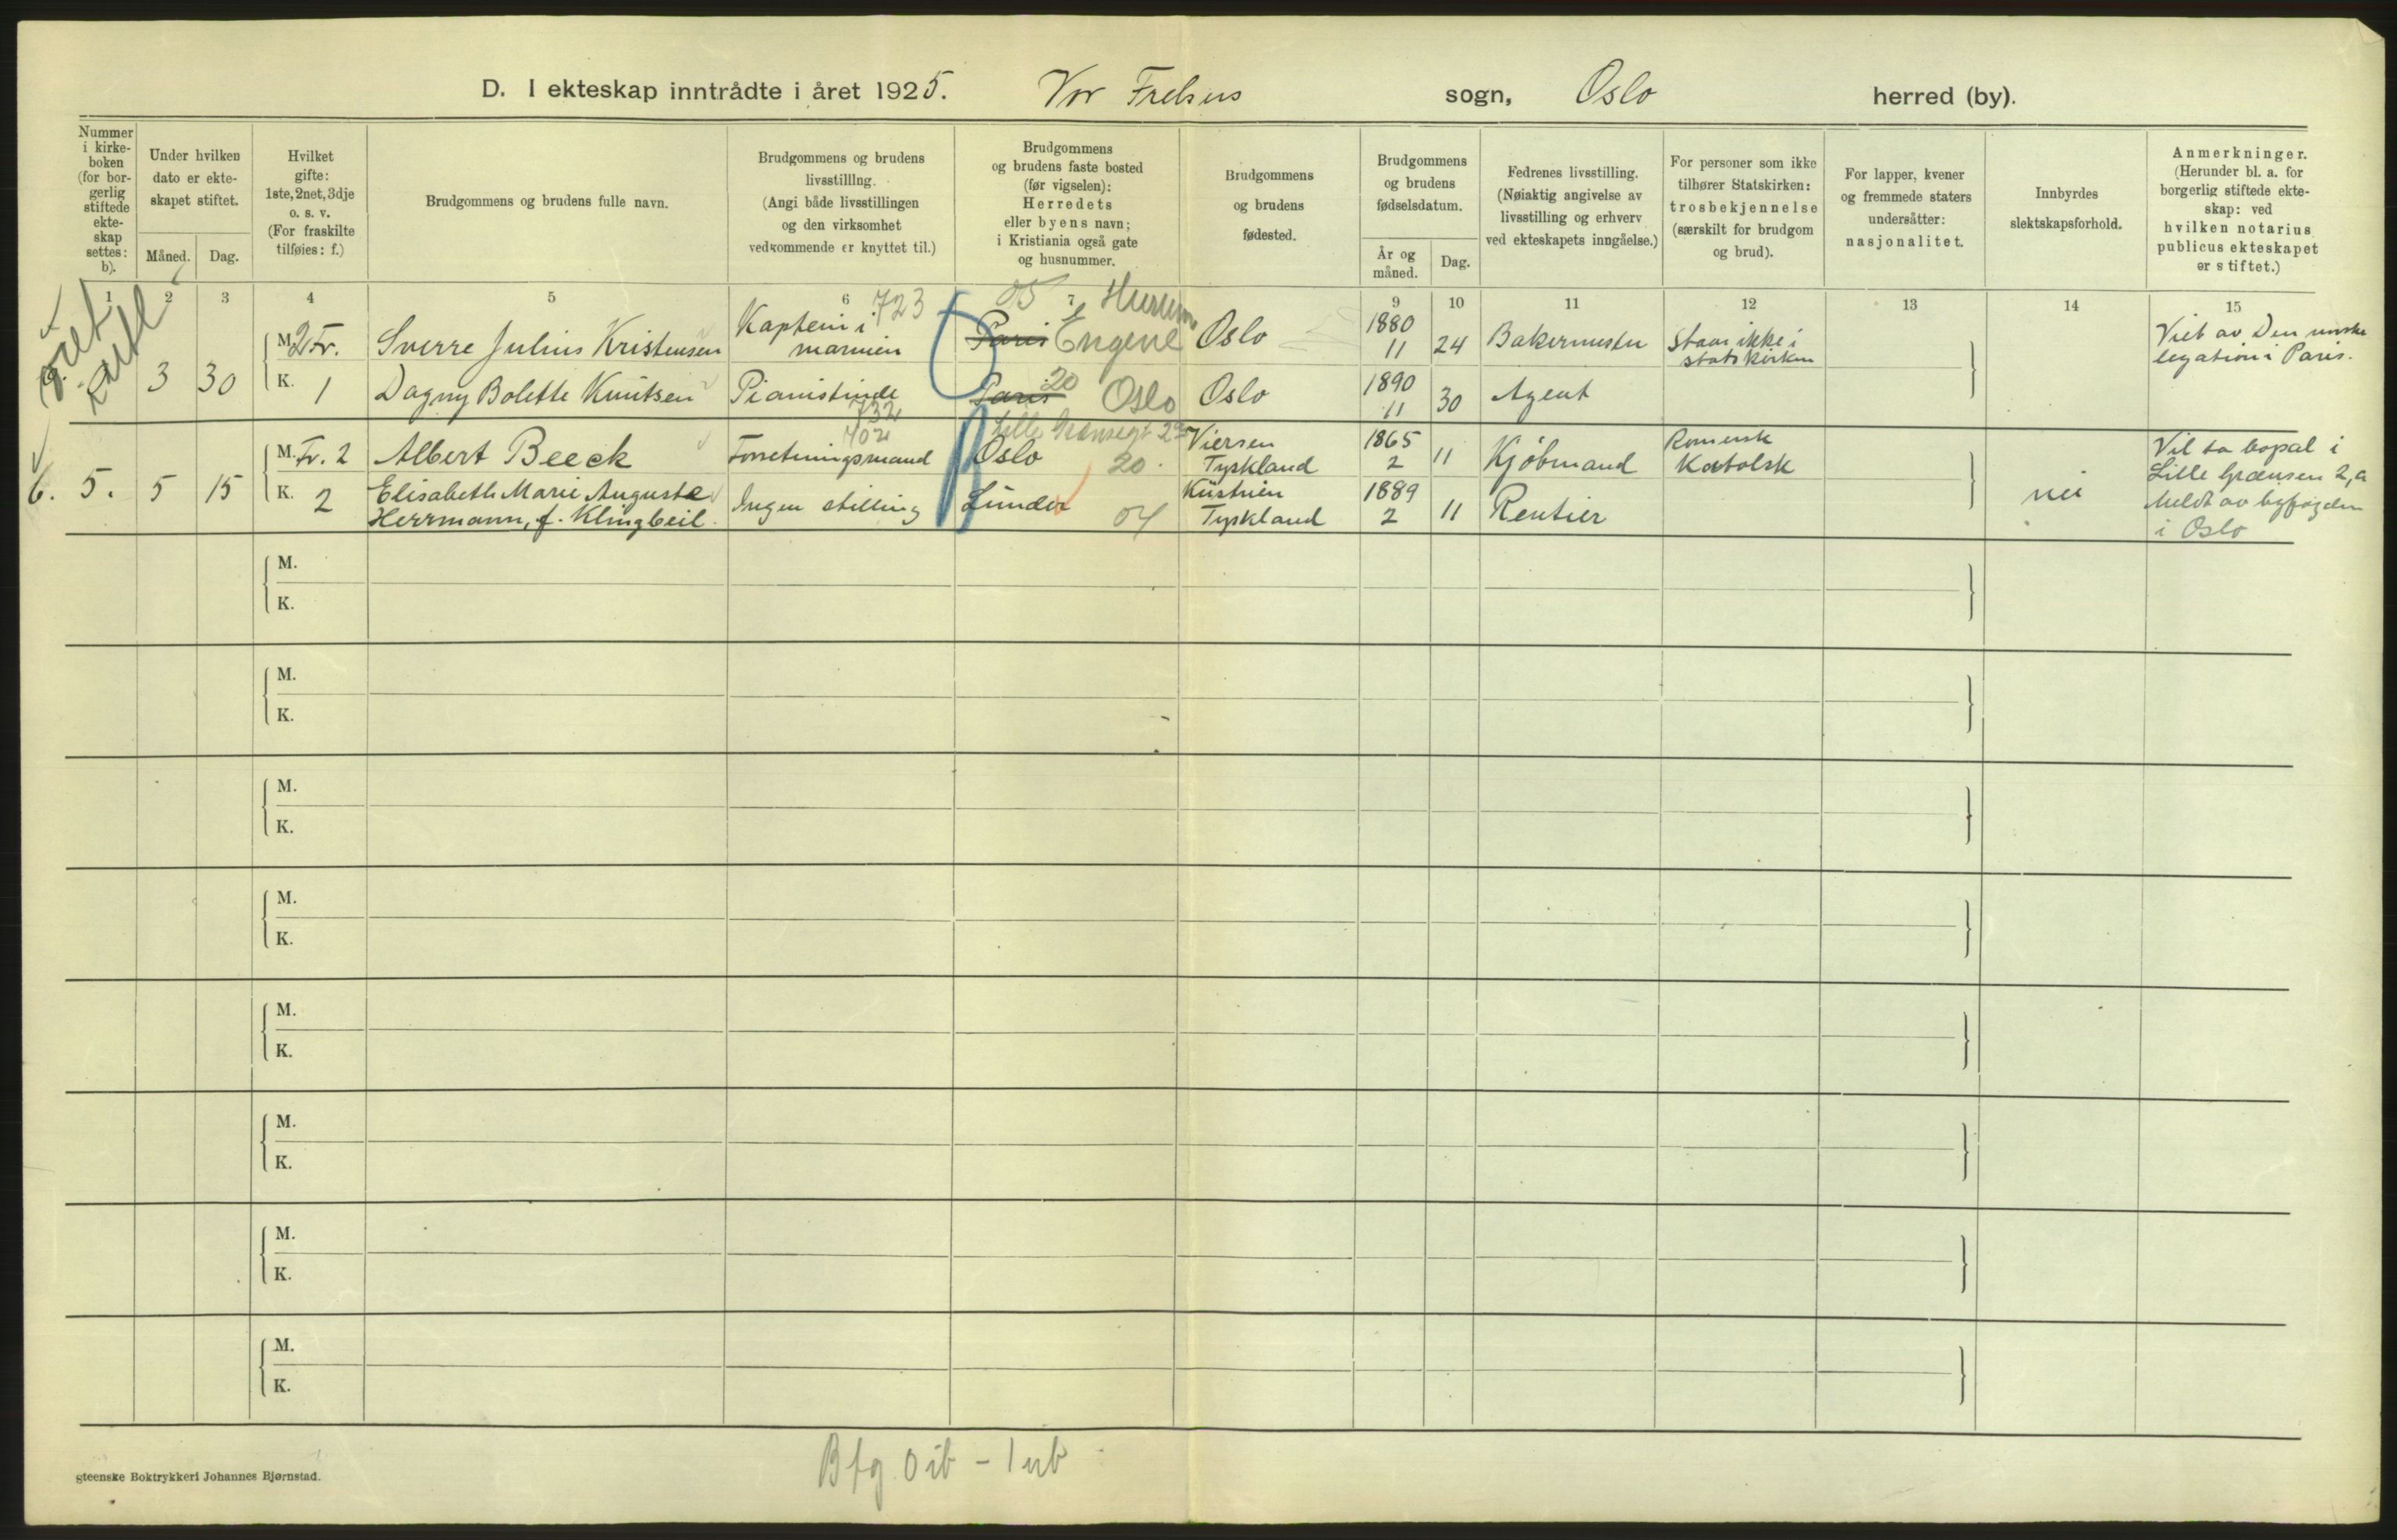 D. I ekteskap inntrådte i året 1925. Vor Frelsers sogn, Oslo herred (by).
Nummer
i kirke-
boken
(for bor-
gerlig
stiftede
ekte-
skap
settes:
b).
Under hvilken
dato er ekte-
skapet stiftet.
Måned. Dag.
Hvilket
gifte:
1ste, 2net, 3dje
o. s. v.
(For fraskilte
tilføies: f.)
Brudgommens og brudens fulle navn.
Brudgommens og brudens
livsstilling.
(Angi både livsstillingen
og den virksomhet
vedkommende er knyttet til.)
Brudgommens
og brudens faste bosted
(før vigselen):
Herredets
eller byens navn;
i Kristiania også gate
og husnummer.
Brudgommens
og brudens
fødested.
Brudgommens
og brudens
fødselsdatum.
År og
måned.
Dag.
Fedrenes livsstilling.
(Nøiaktig angivelse av
livsstilling og erhverv
ved ekteskapets inngåelse.)
For personer som ikke
tilhører Statskirken:
trosbekjennelse
(særskilt for brudgom
og brud).
For lapper, kvener
og fremmede staters
undersåtter:
nasjonalitet.
Innbyrdes
slektskapsforhold.
Anmerkninger.
(Herunder bl. a. for
borgerlig stiftede ekte-
skap: ved
hvilken notarius
publicus ekteskapet
er stiftet.)
1 2 3 4 5 6 7 9 10 11 12 13 14 15
723 05 Hurum
M. 2 Fr. Sverre Julius Kristensen Kaptein i marinen Paris Engene Oslo 1880 11 24 Bakermester Staar ikke i statskirken
Viet av Den norske
legation i Paris.
3 30
K. 1 Dagny Bolette Knutsen Pianistinde Paris 20 Oslo Oslo 1890 11 30 Agent
732
702
Lille Grænsegt 2a
M. Fr. 2 Albert Beeck Forretningsmand Oslo 20. Viersen Tyskland 1865 2 11 Kjöbmand Romersk Katolsk
6. 5. 5 15
K. 2 Elisabeth Marie Auguste
Herrmann, f. Klingbeil. Ingen stilling Lunder 04 Küstrin Tyskland 1889 2 11 Rentier
nei
Vil ta bopæl i
Lille Grænsen 2,a
Meldt av byfogden
i Oslo
M.
K.
M.
K.
M.
K.
M.
K.
M.
K.
M.
K.
M.
K.
M.
K.
steenske Boktrykkeri Johannes Bjørnstad.
Bfg 0 ib - 1 ub